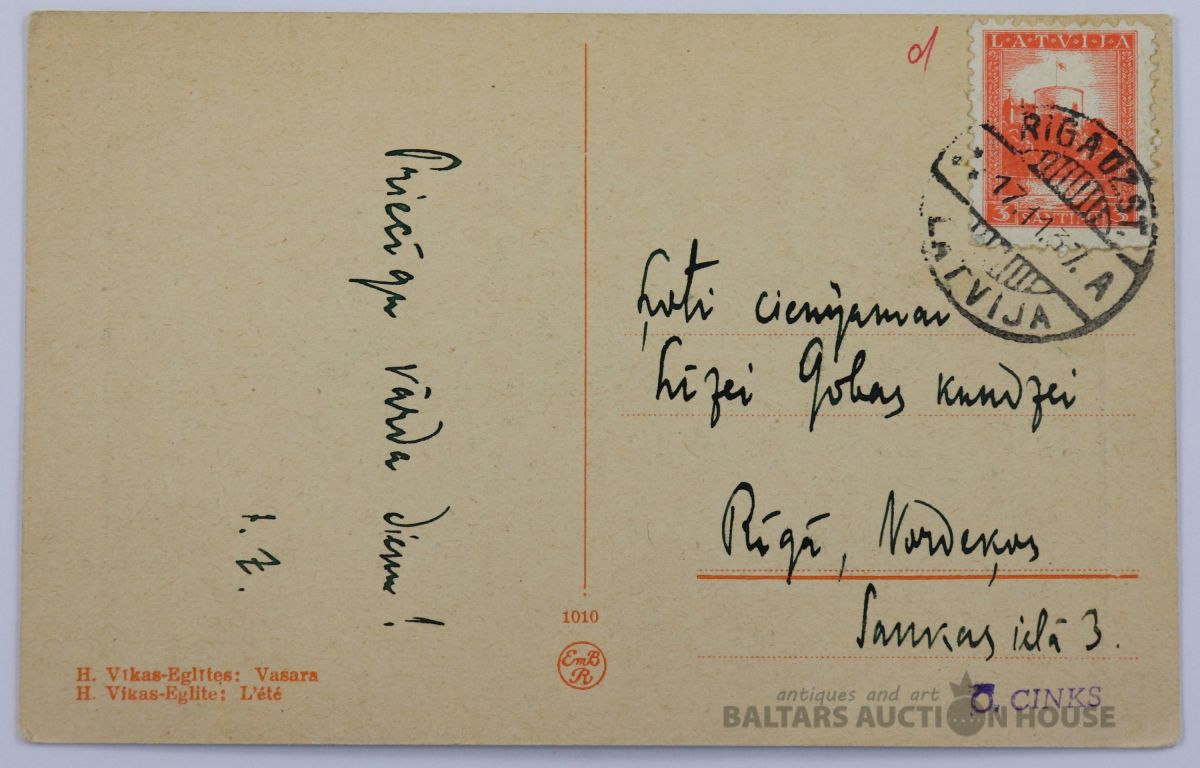 Priecīgu vārda dienu!
H. Vīkas-Eglītes: Vasara
H. Vikas-Eglite: L'été
1010
EmB
R
d
LATVIJA
3 SANTIMI 3
RĪGA DZST
17.11.37. A
LATVIJA
Ļoti cienījamai
Līzei Gobas kundzei
Rīgā, Nordeķos
Saukas ielā 3.
CINKS
antiques and art
BALTARS AUCTION HOUSE